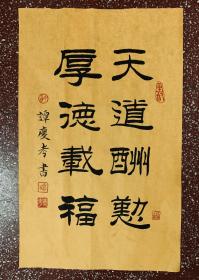 天道酬勤
厚德載福
譚慶孝書